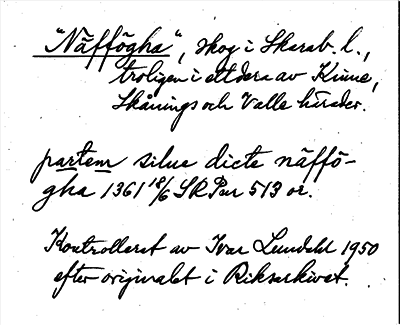 "Näffögha", skog i Skarab. l.,
troligen i ettdera av Kinne,
Skånings och Valle härader.
partem silue dicte näffö-
gha 1361 18/6 SRPar 513 or.
Kontrollerat av Ivar Lundahl 1950
efter originalet i Riksarkivet.